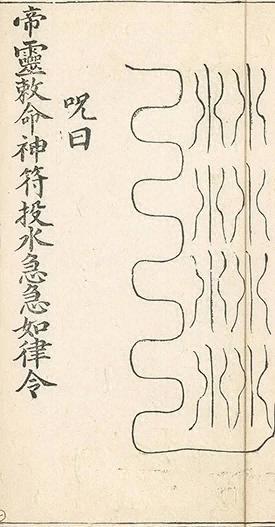 呪曰
帝靈敕命神符投水急急如律令